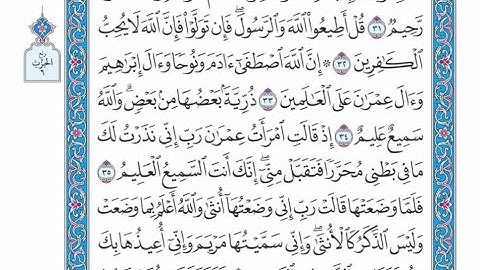 رَّحِيمٌ ٣١ قُلْ أَطِيعُوا۟ ٱللَّهَ وَٱلرَّسُولَ ۖ فَإِن تَوَلَّوْا۟ فَإِنَّ ٱللَّهَ لَا يُحِبُّ
ٱلْكَـٰفِرِينَ ٣٢ ۞ إِنَّ ٱللَّهَ ٱصْطَفَىٰٓ ءَادَمَ وَنُوحًا وَءَالَ إِبْرَٰهِيمَ
وَءَالَ عِمْرَٰنَ عَلَى ٱلْعَـٰلَمِينَ ٣٣ ذُرِّيَّةًۢ بَعْضُهَا مِنۢ بَعْضٍ ۗ وَٱللَّهُ
سَمِيعٌ عَلِيمٌ ٣٤ إِذْ قَالَتِ ٱمْرَأَتُ عِمْرَٰنَ رَبِّ إِنِّى نَذَرْتُ لَكَ
مَا فِى بَطْنِى مُحَرَّرًا فَتَقَبَّلْ مِنِّىٓ ۖ إِنَّكَ أَنتَ ٱلسَّمِيعُ ٱلْعَلِيمُ ٣٥
فَلَمَّا وَضَعَتْهَا قَالَتْ رَبِّ إِنِّى وَضَعْتُهَآ أُنثَىٰ وَٱللَّهُ أَعْلَمُ بِمَا وَضَعَتْ
وَلَيْسَ ٱلذَّكَرُ كَٱلْأُنثَىٰ ۖ وَإِنِّى سَمَّيْتُهَا مَرْيَمَ وَإِنِّىٓ أُعِيذُهَا بِكَ
ربع
الحزب
٦